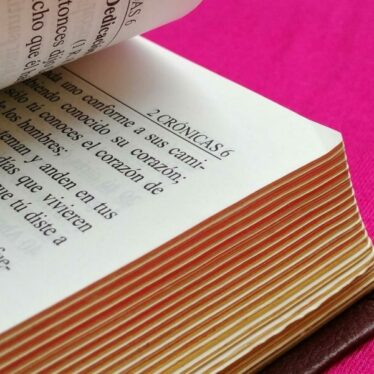 AS 6
Dedicació
(1 R
tonces dijo
cho que él h
2 CRÓNICAS 6
da uno conforme a sus cami-
iendo conocido su corazón;
sólo tú conoces el corazón de
de los hombres;
teman y anden en tus
días que vivieren
que tú diste a